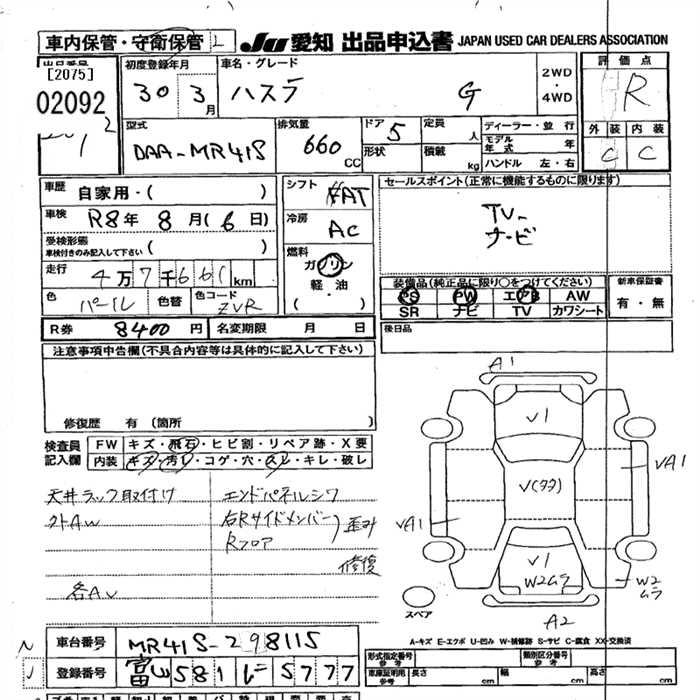 車内保管・守衛保管 L
JU 愛知 出品申込書 JAPAN USED CAR DEALERS ASSOCIATION
出品番号
[2075]
02092
初度登録年月
30 3月
車名・グレード
ハスラ G
2WD
・
4WD
評価点
R
外装 内装
C C
型式
DAA-MR41S
排気量
660 CC
ドア 5
形状
定員 人
積載 kg
ディーラー・並行
モデル年式 年
ハンドル 左・右
車歴
自家用・( )
車検
R8年 8月( 6日)
受検形態
車検付きのみ記入して下さい ( )
走行
4万7千661km
色
パール
色替
色コード
ZVR
R券 8400円
名変期限 月 日
シフト
FAT
冷房
AC
燃料
ガソリン
軽油
( )
セールスポイント(正常に機能するものに限ります)
TV
ナービ
装備品(純正品に限り○をつけてください)
PS PW エアB AW
SR ナビ TV カワシート
新車保証書
有・無
後日品
注意事項申告欄(不具合内容等は具体的に記入して下さい)
修復歴 有(箇所 )
検査員
記入欄
FW キズ・飛石・ヒビ割・リペア跡・X要
内装 キズ・汚レ・コゲ・穴・スレ・キレ・破レ
天井ラック取付け
外AW
各AV
エンドパネルシワ
右Rサイドメンバー
Rフロア
歪み
修復
A1
V1
V(タタ)
VA1
VA1
V1
W2ムラ
W2
ムラ
A2
スペア
A-キズ E-エクボ U-凹み W-補修跡 S-サビ C-腐食 XX-交換済
車台番号 MR41S-298115
登録番号 富山581 レ5777
形式指定番号
参考
類別区分番号
参考
車庫証明用
参考
長さ cm
幅 cm
高さ cm